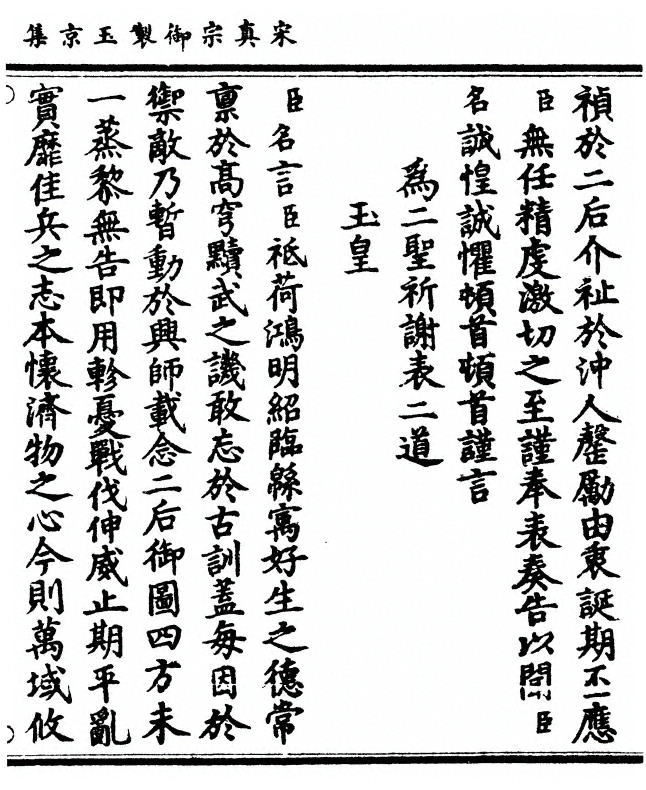 宋真宗御製玉京集
禎於二后介祉於沖人罄勵由衷誕期丕應
臣無任精虔激切之至謹奉表奏告以聞臣
名誠惶誠懼頓首頓首謹言
為二聖祈謝表二道
玉皇
臣名言臣祗荷鴻明紹臨緜寓好生之德常
禀於高穹黷武之譏敢忘於古訓蓋每因於
禦敵乃暫動於興師載念二后御圖四方未
一蒸黎無告即用軫憂戰伐伸威止期平亂
實靡佳兵之志本懷濟物之心今則萬域攸